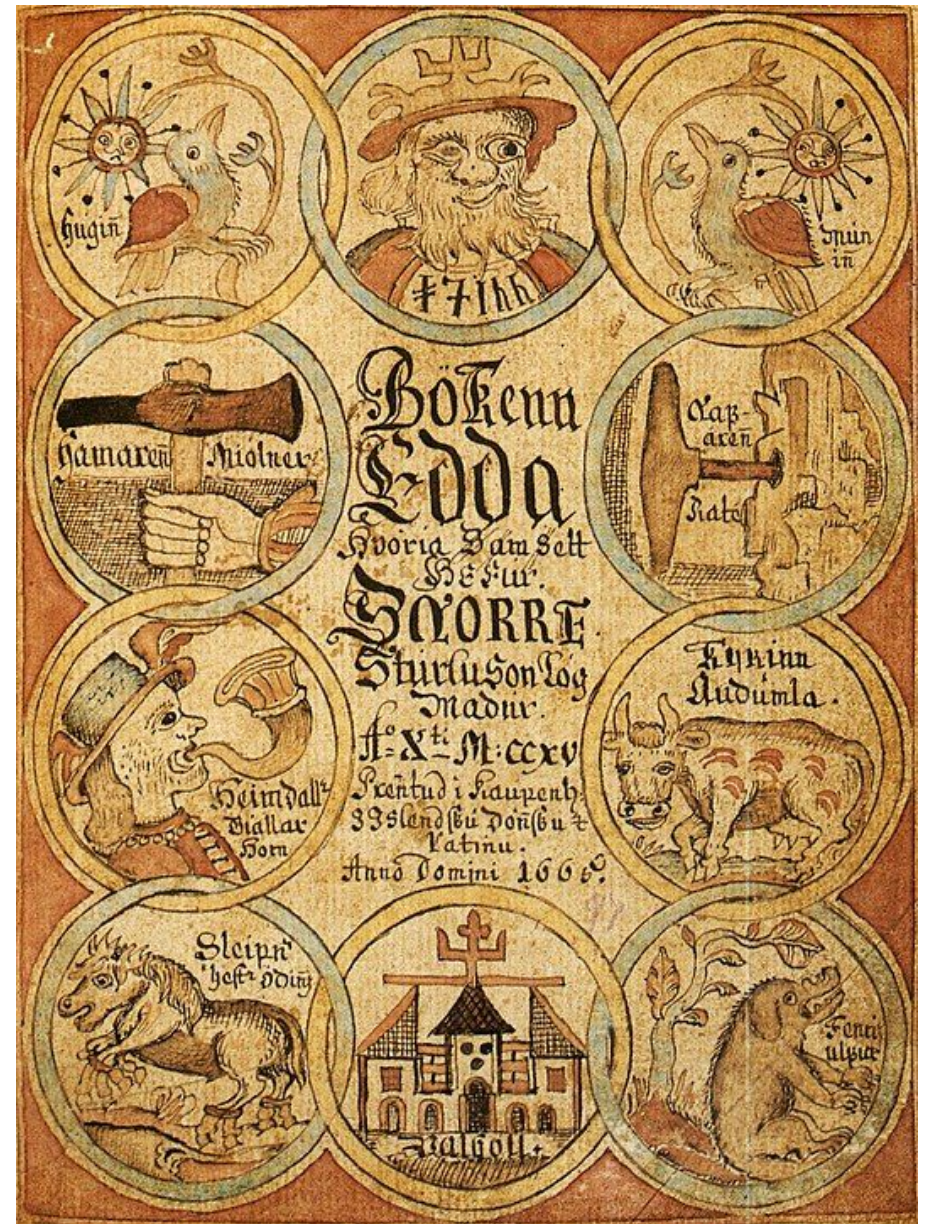 Hugin̄
‡7Ihh
Mun
in̄
Hamaren̄ Miolner
Naβ-
aren̄
Rate
Bökenn
Edda
Hvoria Samsett
Hefur.
SNORRE
Sturluson Lög
Madur.
Aº Xti M:CCXV
Pren̄tud i Kaupenh:
Jslendsku Don̄sku &
Latinu.
Anno Domini 166
Heimdallr
Giallar
Horn
Kyrinn
Audumla.
Sleipn̄
hestr Odins
Valholl
Fenris
ulfur